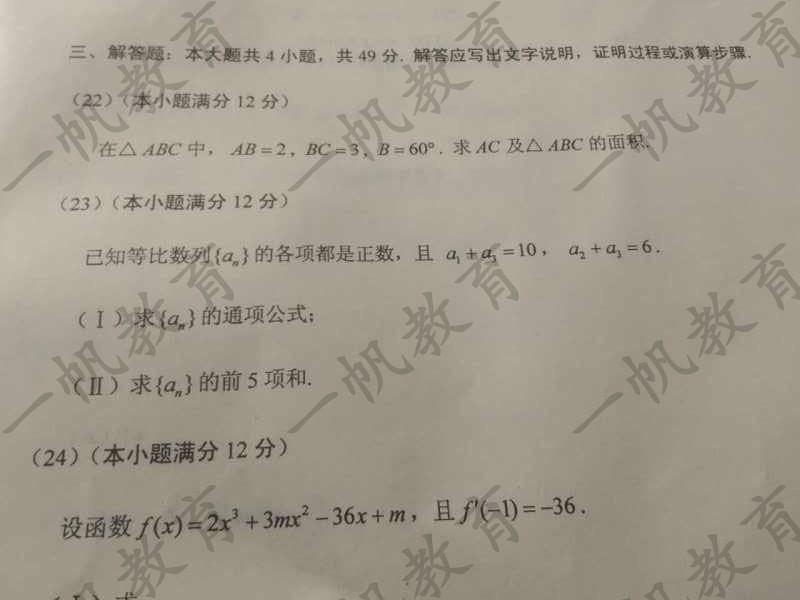 三、解答题：本大题共 4 小题，共 49 分. 解答应写出文字说明，证明过程或演算步骤.
（22）（本小题满分 12 分）
在△ ABC 中， AB = 2 , BC = 3 , B = 60° . 求 AC 及△ ABC 的面积.
（23）（本小题满分 12 分）
已知等比数列{aₙ} 的各项都是正数，且 a₁ + a₃ = 10 ， a₂ + a₃ = 6 .
（Ⅰ）求{aₙ} 的通项公式；
（Ⅱ）求{aₙ} 的前 5 项和.
（24）（本小题满分 12 分）
设函数 f(x) = 2x³ + 3mx² − 36x + m，且 f′(−1) = −36 .
（Ⅰ）求
一帆教育
一帆教育
一帆教育
一帆教育
一帆教育
一帆教育
一帆教育
一帆教育
一帆教育